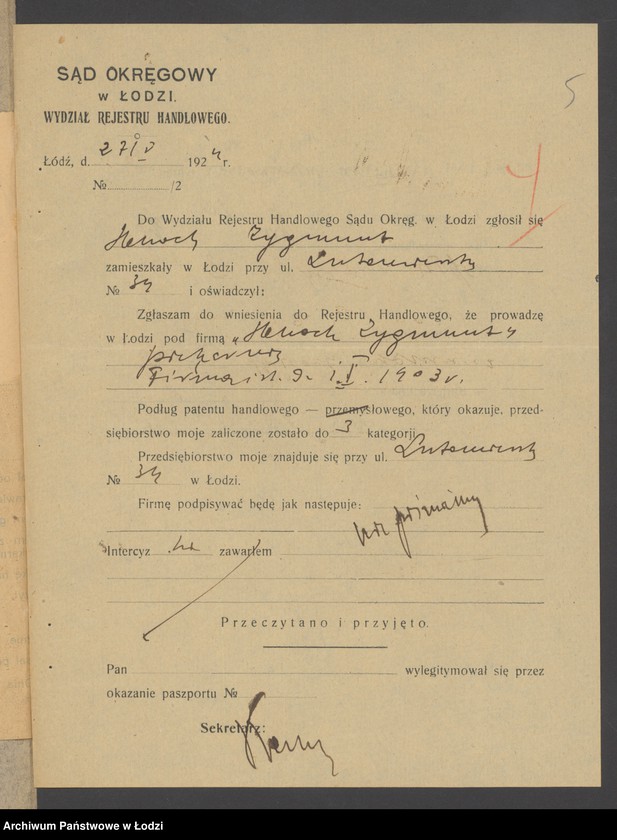 5
SĄD OKRĘGOWY
w ŁODZI.
WYDZIAŁ REJESTRU HANDLOWEGO.
Łódź, d. 27/V 1924 r.
№ /2
4
Do Wydziału Rejestru Handlowego Sądu Okręg. w Łodzi zgłosił się
Henoch Zygmunt
zamieszkały w Łodzi przy ul.
№ 34 i oświadczył:
Zgłaszam do wniesienia do Rejestru Handlowego, że prowadzę
w Łodzi pod firmą „Henoch Zygmunt"
piekarnię
Firma ist. 9. 1.I. 1903 r.
Podług patentu handlowego — przemysłowego, który okazuje, przed-
siębiorstwo moje zaliczone zostało do 3 kategorji
Przedsiębiorstwo moje znajduje się przy ul.
№ 34 w Łodzi.
Firmę podpisywać będę jak następuje:
Intercyz nie zawarłem
Przeczytano i przyjęto.
Pan wylegitymował się przez
okazanie paszportu №
Sekretarz:
Archiwum Państwowe w Łodzi